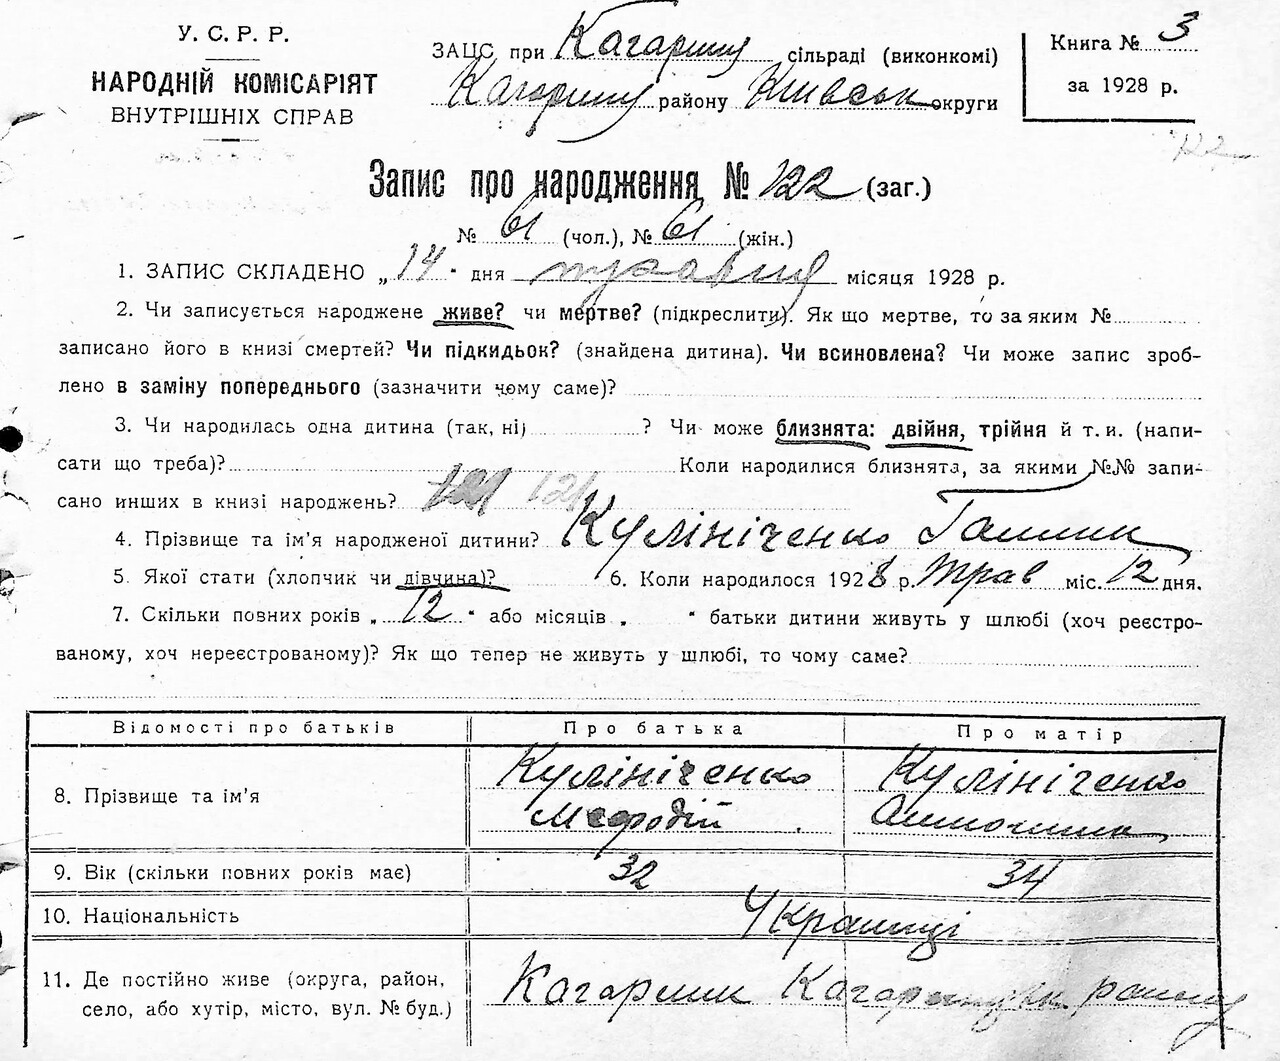 У. С. Р. Р.
НАРОДНІЙ КОМІСАРІЯТ
ВНУТРІШНІХ СПРАВ
ЗАЦС при Кагарлиц. сільраді (виконкомі)
Кагарлиц. району Київськ округи
Книга № 3
за 1928 р.
122
Запис про народження № 122 (заг.)
№ 61 (чол.), № 61 (жін.)
1. ЗАПИС СКЛАДЕНО „ 14 “ дня травня місяця 1928 р.
2. Чи записується народжене живе? чи мертве? (підкреслити). Як що мертве, то за яким №
записано його в книзі смертей? Чи підкидьок? (знайдена дитина). Чи всиновлена? Чи може запис зроб-
лено в заміну попереднього (зазначити чому саме)?
3. Чи народилась одна дитина (так, ні) ? Чи може близнята: двійня, трійня й т. и. (напи-
сати що треба)? Коли народилися близнята, за якими №№ запи-
сано инших в книзі народжень? 121 121
4. Прізвище та ім’я народженої дитини? Кулініченко Галина
5. Якої стати (хлопчик чи дівчина)? 6. Коли народилося 1928 р. Трав міс. 12 дня.
7. Скільки повних років „ 12 “ або місяців „ “ батьки дитини живуть у шлюбі (хоч реєстро-
ваному, хоч нереєстрованому)? Як що тепер не живуть у шлюбі, то чому саме?
Відомості про батьків Про батька Про матір
8. Прізвище та ім’я Кулініченко Кулініченко
Мефодій Антонина
9. Вік (скільки повних років має) 32 34
10. Національність Українці
11. Де постійно живе (округа, район,
село, або хутір, місто, вул. № буд.) Кагарлик Кагарлицьк. району